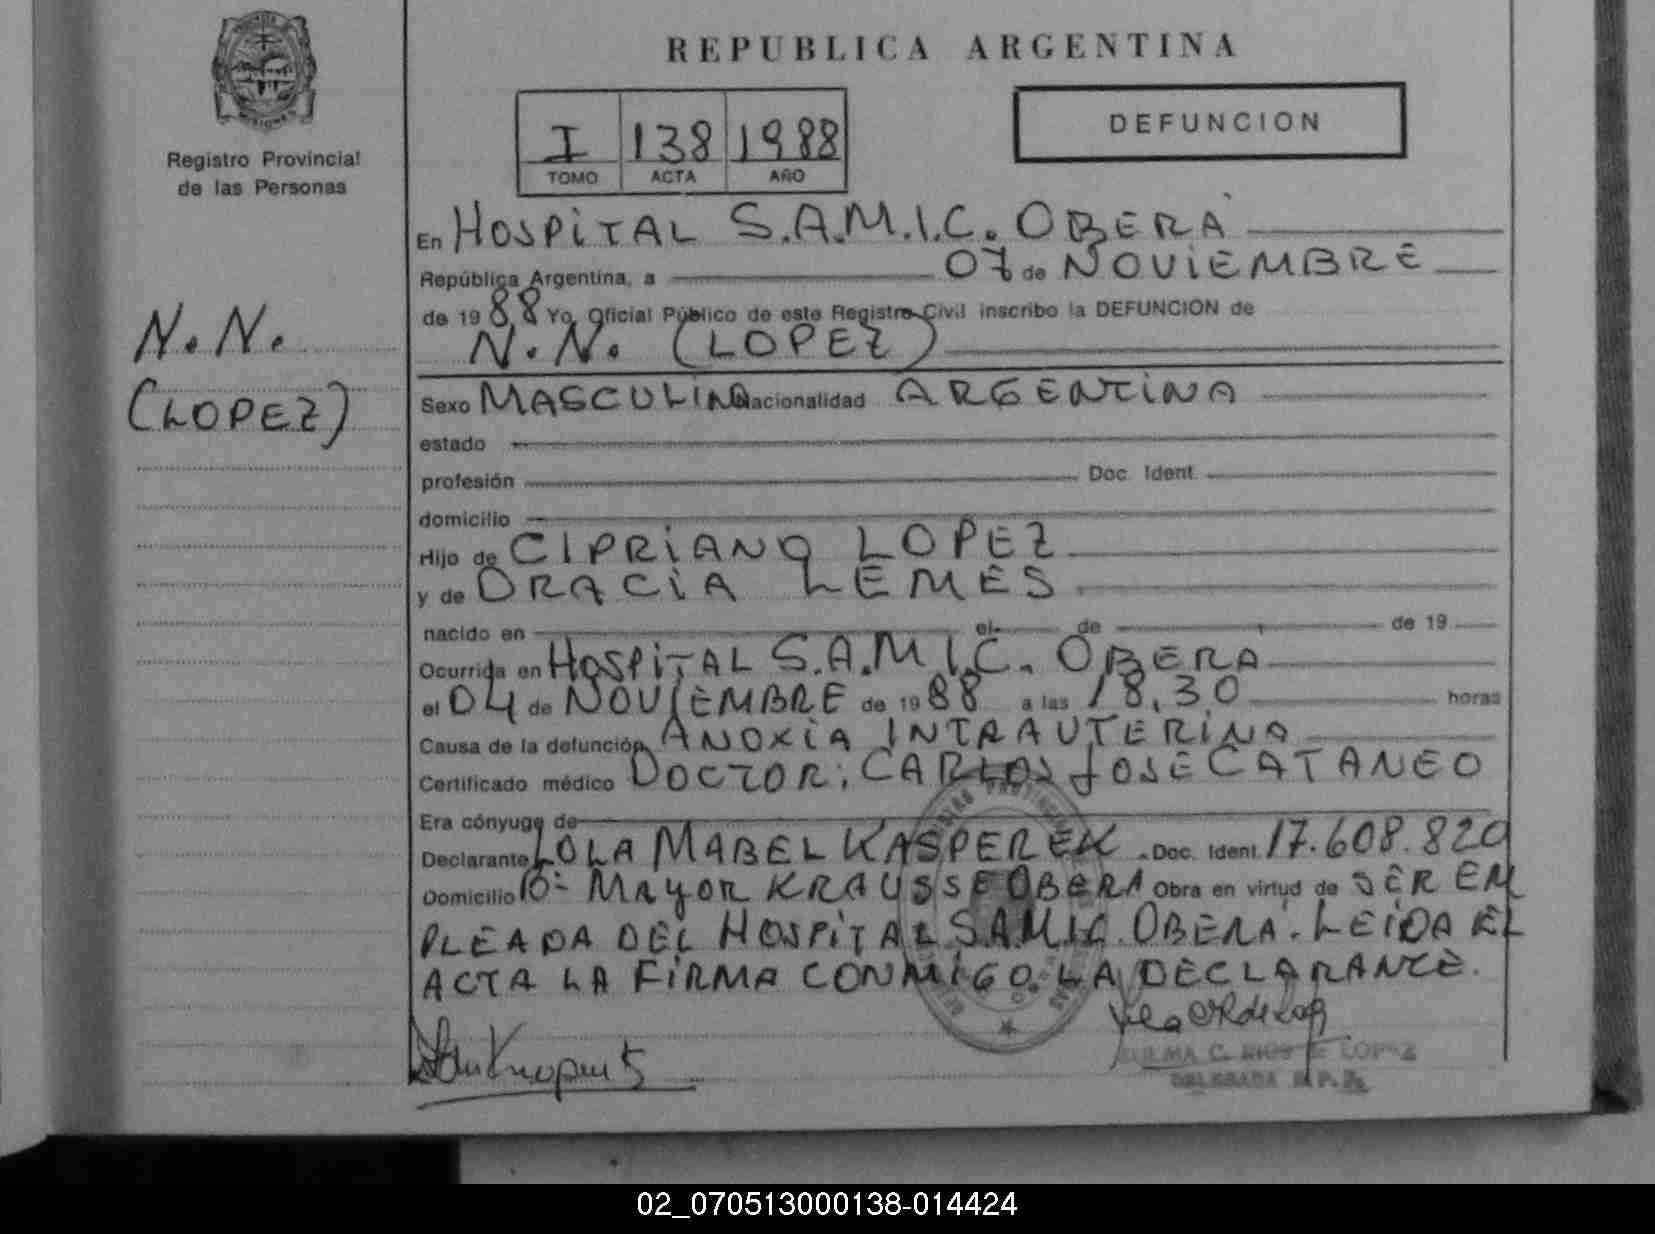 REPUBLICA ARGENTINA
MISIONES
Registro Provincial
de las Personas
I 138 1988
TOMO ACTA AÑO
DEFUNCION
N.N.
(LOPEZ)
En HOSPITAL S.A.M.I.C. OBERA
República Argentina, a 07 de NOVIEMBRE
de 19 88 Yo, Oficial Público de este Registro Civil inscribo la DEFUNCION de
N.N. (LOPEZ)
Sexo MASCULINO Nacionalidad ARGENTINA
estado
profesión Doc. Ident.
domicilio
Hijo de CIPRIANO LOPEZ
y de ORACIA LEMES
nacido en el de de 19
Ocurrida en HOSPITAL S.A.M.I.C. OBERA
el 04 de NOVIEMBRE de 19 88 a las 18,30 horas
Causa de la defunción ANOXIA INTRAUTERINA
Certificado médico DOCTOR: CARLOS JOSE CATANEO
Era cónyuge de
Declarante LOLA MABEL KASPEREK Doc. Ident. 17.608.820
Domicilio Bº MAYOR KRAUSSE OBERA Obra en virtud de SER EM
PLEADA DEL HOSPITAL SAMIC. OBERA. LEIDA EL
ACTA LA FIRMA CONMIGO LA DECLARANTE.
ZULMA C. RIOS de LOPEZ
DELEGADA R.P.P.
02_070513000138-014424